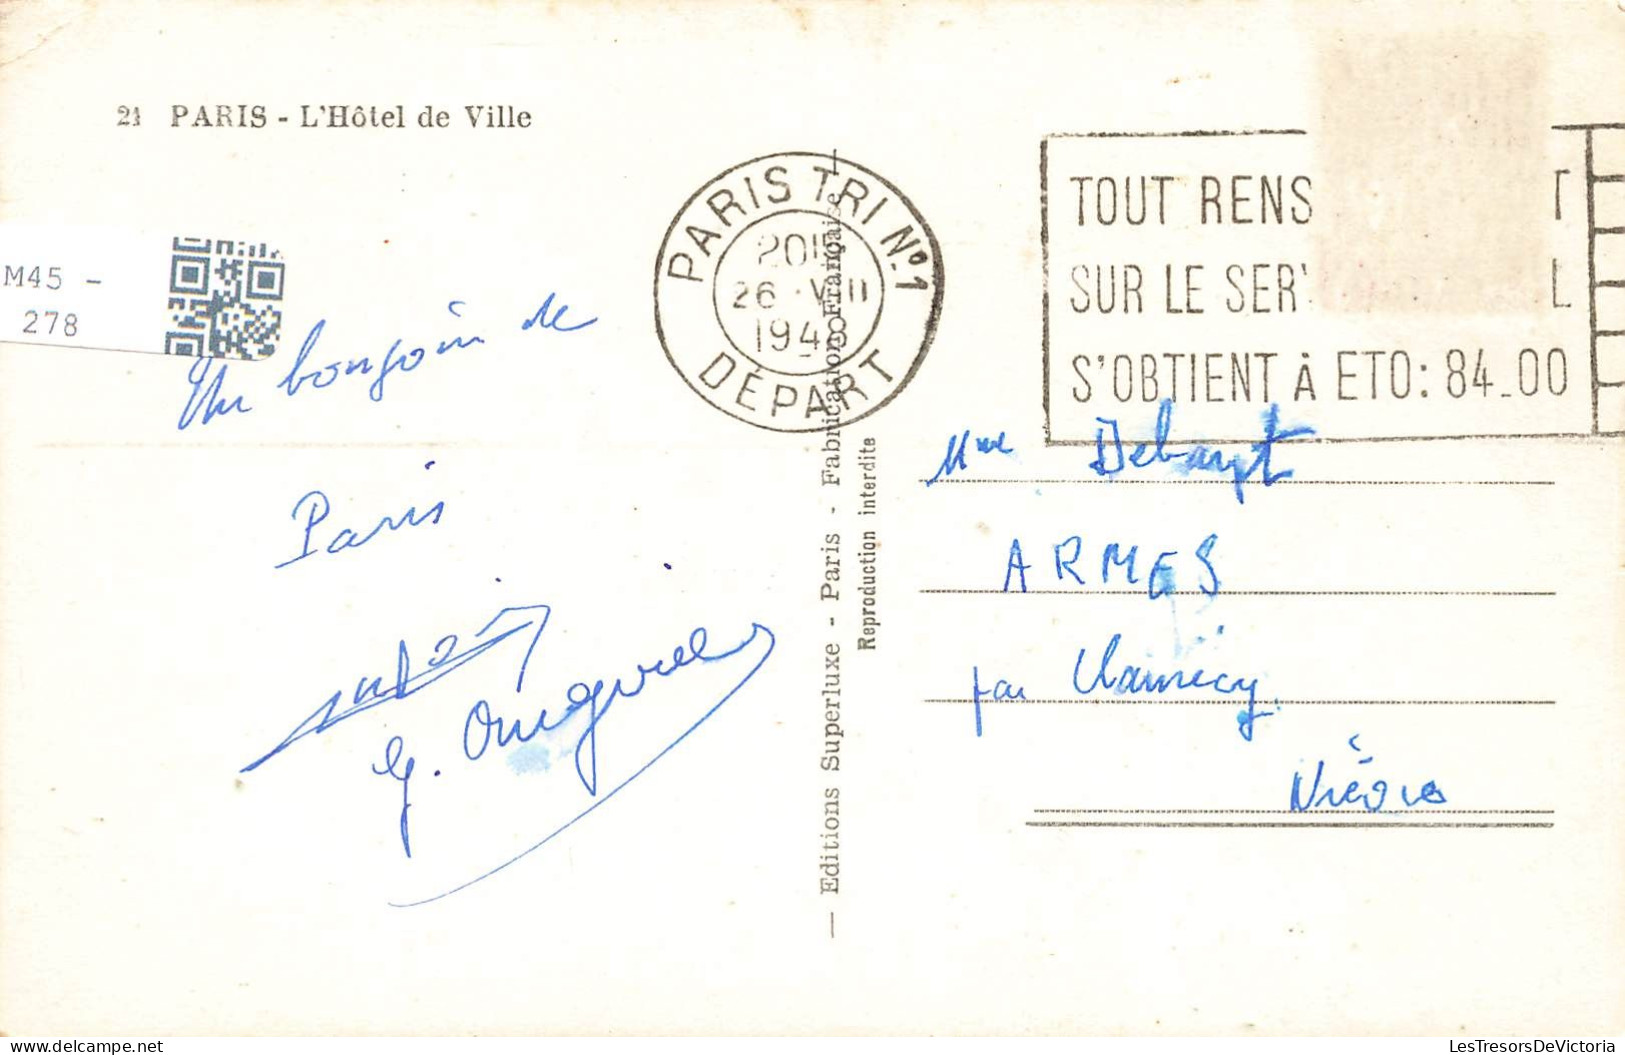 21 PARIS - L'Hôtel de Ville
M45 -
278
PARIS TRI Nº1
26 VIII
194
DÉPART
TOUT RENS T
SUR LE SER L
S'OBTIENT À ETO: 84_00
Un bongoin de
Paris
G.
— Editions Superluxe - Paris - Fabrication Française —
Reproduction interdite
Mme
ARMES
par Clamecy
Nièvre
LesTresorsDeVictoria